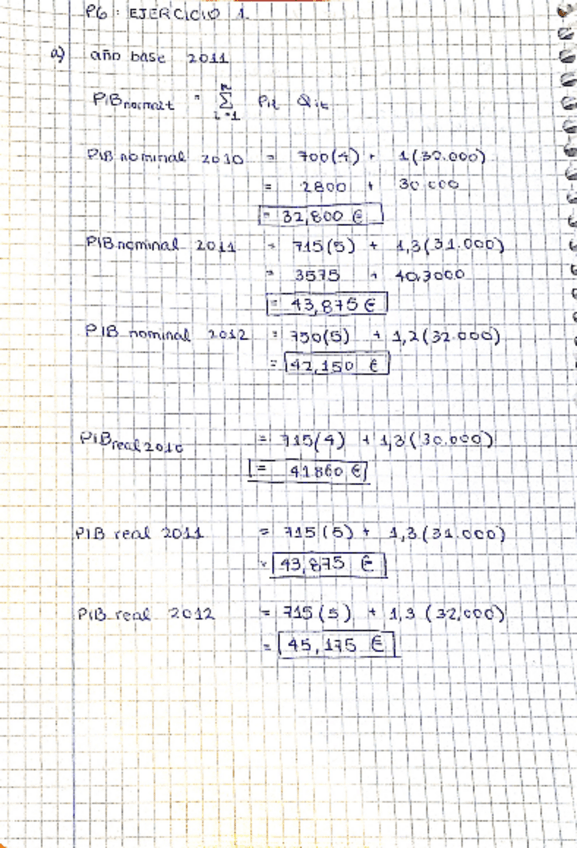 P6: EJERCICIO 1.
a) año base 2011
PIBnominalt = Σ Pit Qit
n
i=1
PIB nominal 2010 = 700(4) + 1(30.000)
= 2800 + 30 000
= 32,800 €
PIB nominal 2011 = 715(5) + 1,3(31.000)
= 3575 + 40.3000
= 43,875 €
PIB nominal 2012 = 750(5) + 1,2(32.000)
= 42,150 €
PIB real 2010 = 715(4) + 1,3(30.000)
= 41860 €
PIB real 2011 = 715(5) + 1,3(31.000)
= 43,875 €
PIB real 2012 = 715(5) + 1,3(32,000)
= 45,175 €